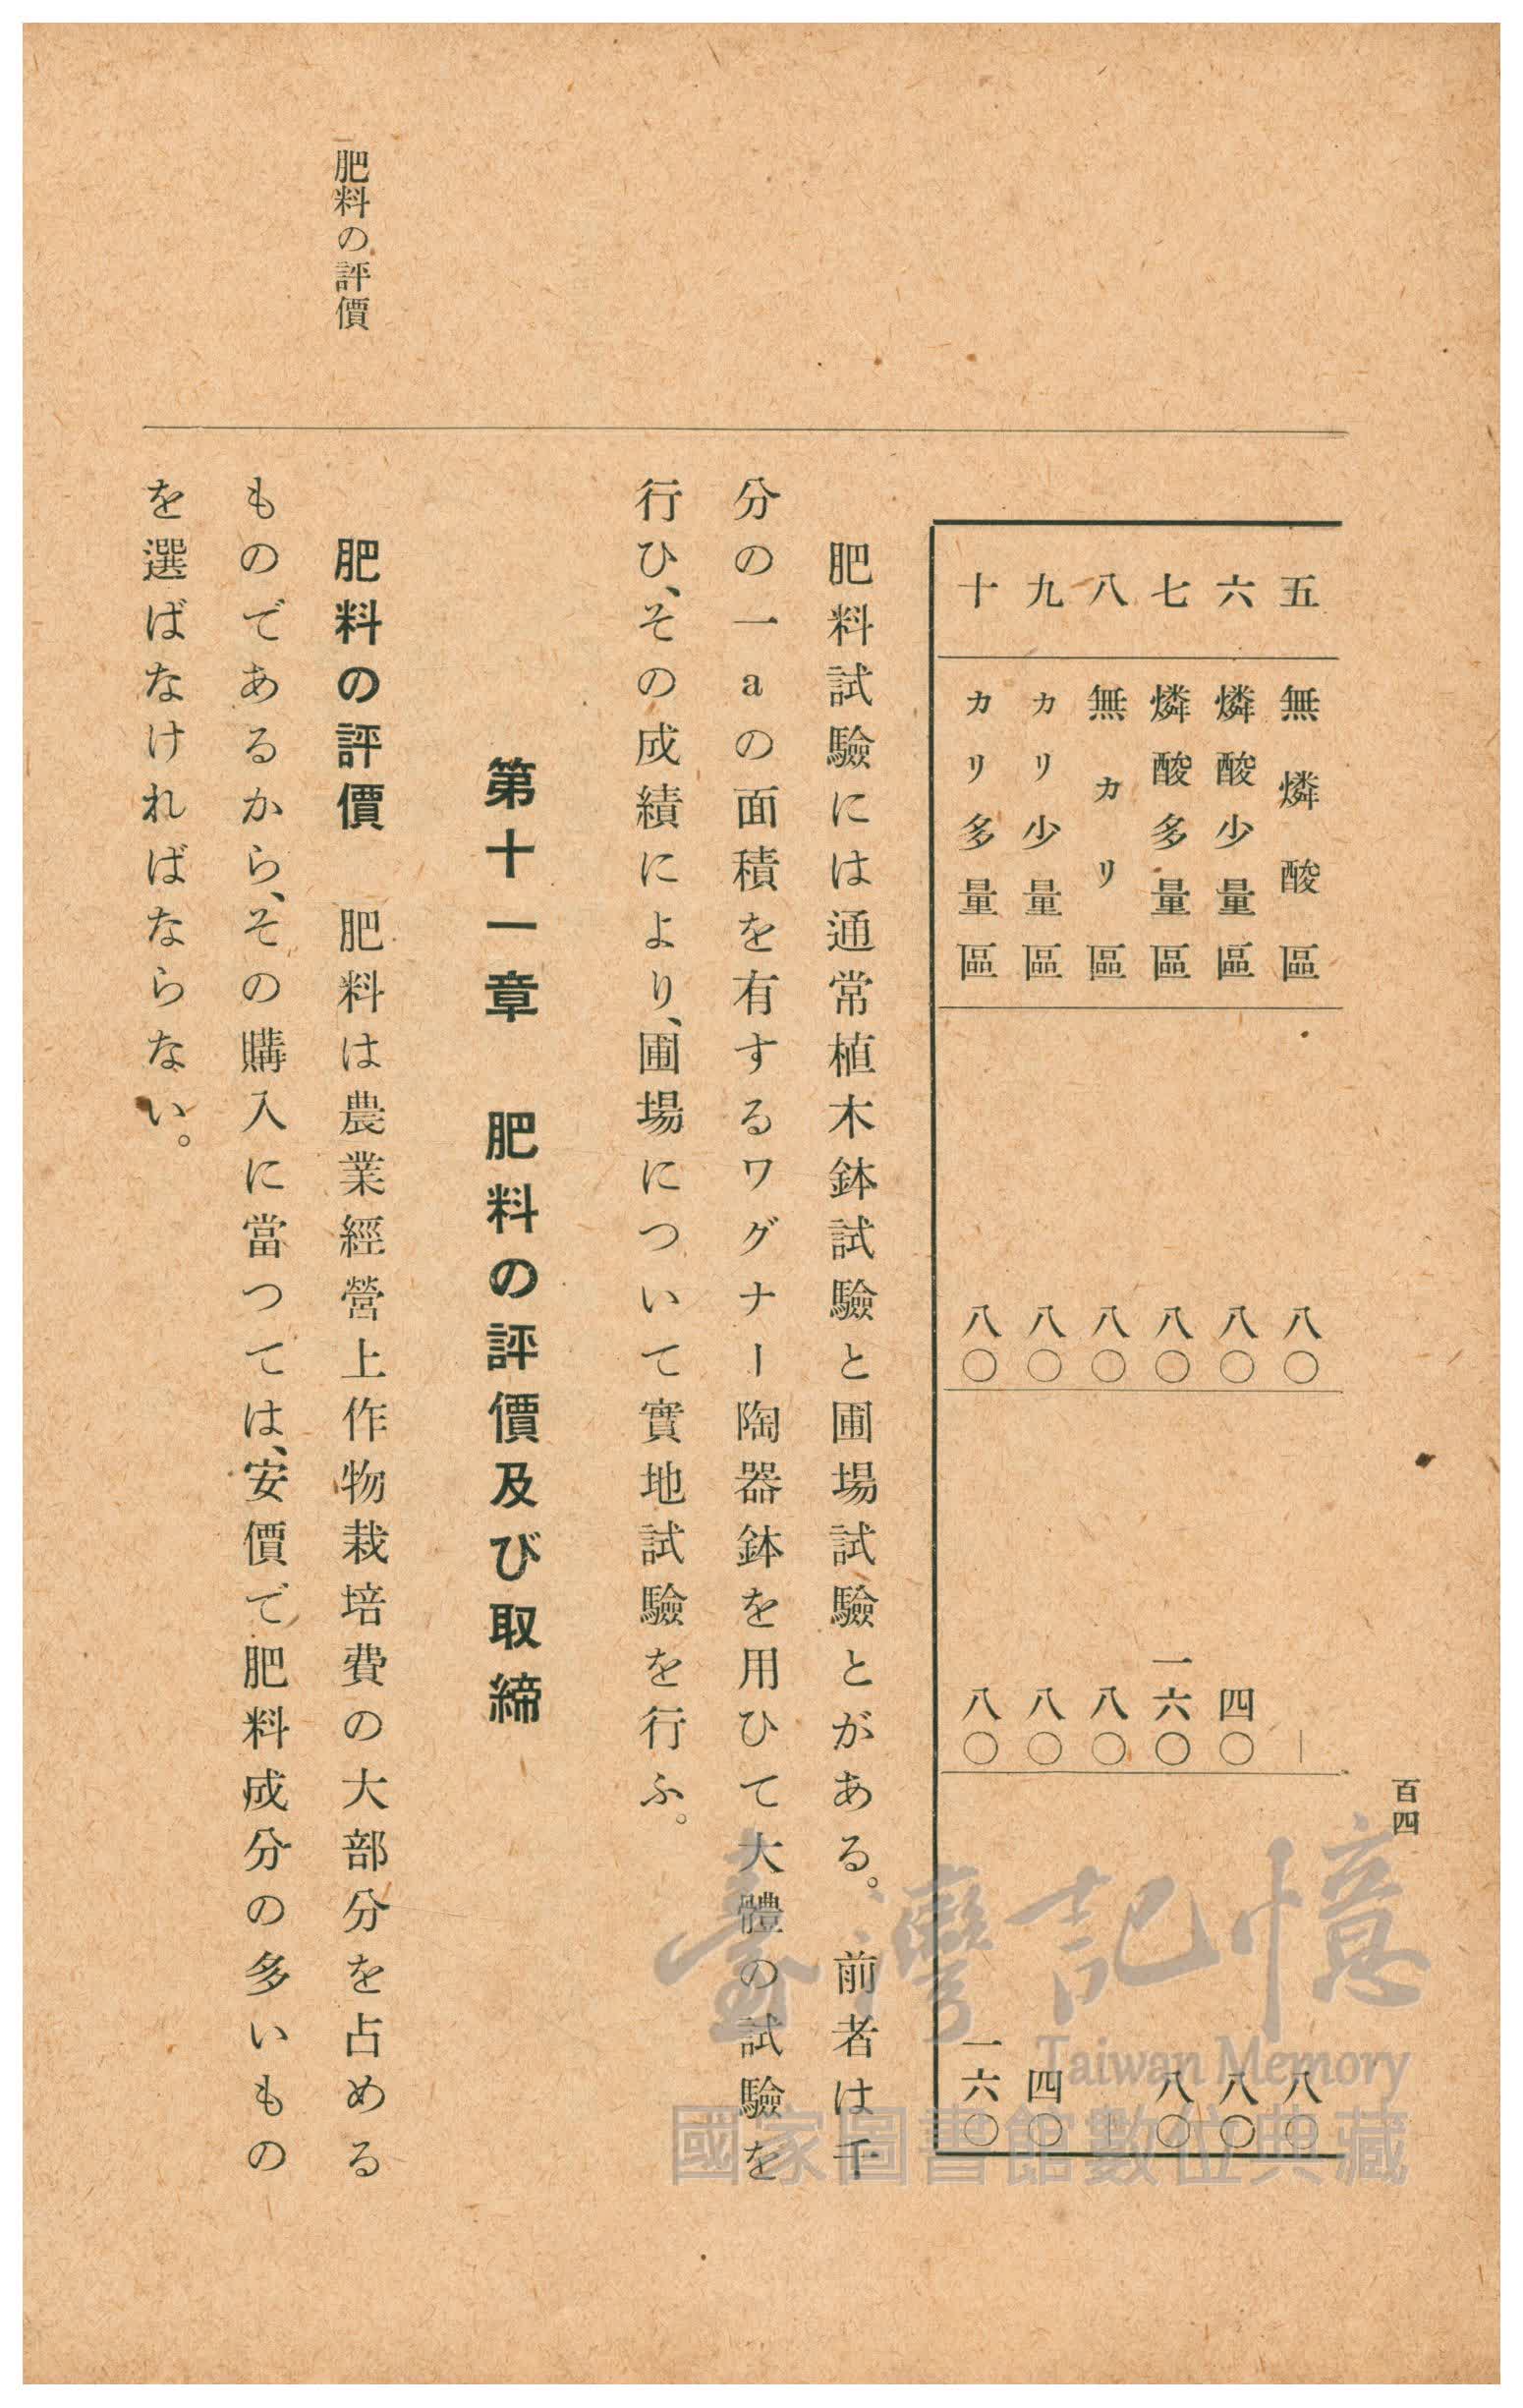 百四
五 無燐酸區 八〇 ｜ 八〇
六 燐酸少量區 八〇 四〇 八〇
七 燐酸多量區 八〇 一六〇 八〇
八 無カリ區 八〇 八〇 ｜
九 カリ少量區 八〇 八〇 四〇
十 カリ多量區 八〇 八〇 一六〇
肥料試驗には通常植木鉢試驗と圃場試驗とがある。前者は千
分の一aの面積を有するワグナー陶器鉢を用ひて大體の試驗を
行ひ、その成績により、圃場について實地試驗を行ふ。
第十一章 肥料の評價及び取締
肥料の評價
肥料の評價 肥料は農業經營上作物栽培費の大部分を占める
ものであるから、その購入に當つては、安價で肥料成分の多いもの
を選ばなければならない。
臺灣記憶
Taiwan Memory
國家圖書館數位典藏